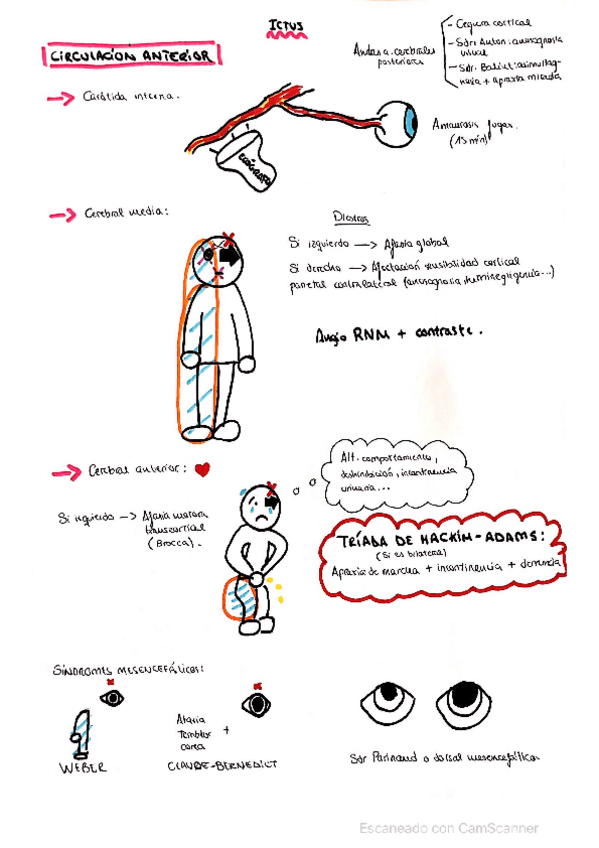 ICTUS
CIRCULACIÓN ANTERIOR
Ambas a. cerebrales
posteriores
- Ceguera cortical
- Sdr. Anton: anosognosia
visual
- Sdr. Balint: simultag-
nosia + apraxia mirada
→ Carótida interna.
ECÓGRAFO
Amaurosis fugax.
(15 min)
→ Cerebral media:
Si izquierdo → Afasia global
Si derecho → Afectación sensibilidad cortical
parietal contralateral (anosognosia, heminegligencia...)
Angio RNM + contraste.
→ Cerebral anterior:
Alt. comportamiento,
deshinibición, incontinencia
urinaria...
Si izquierdo → Afasia motora
transcortical
(Brocca).
TRÍADA DE HACKIM-ADAMS:
(Si es bilateral)
Apraxia de marcha + incontinencia + demencia
SÍNDROMES MESENCEFÁLICOS:
WEBER
Ataxia
Temblor
corea
+
CLAUDE-BERNEDICT
Sdr Parinaud o dorsal mesencefálico
Escaneado con CamScanner